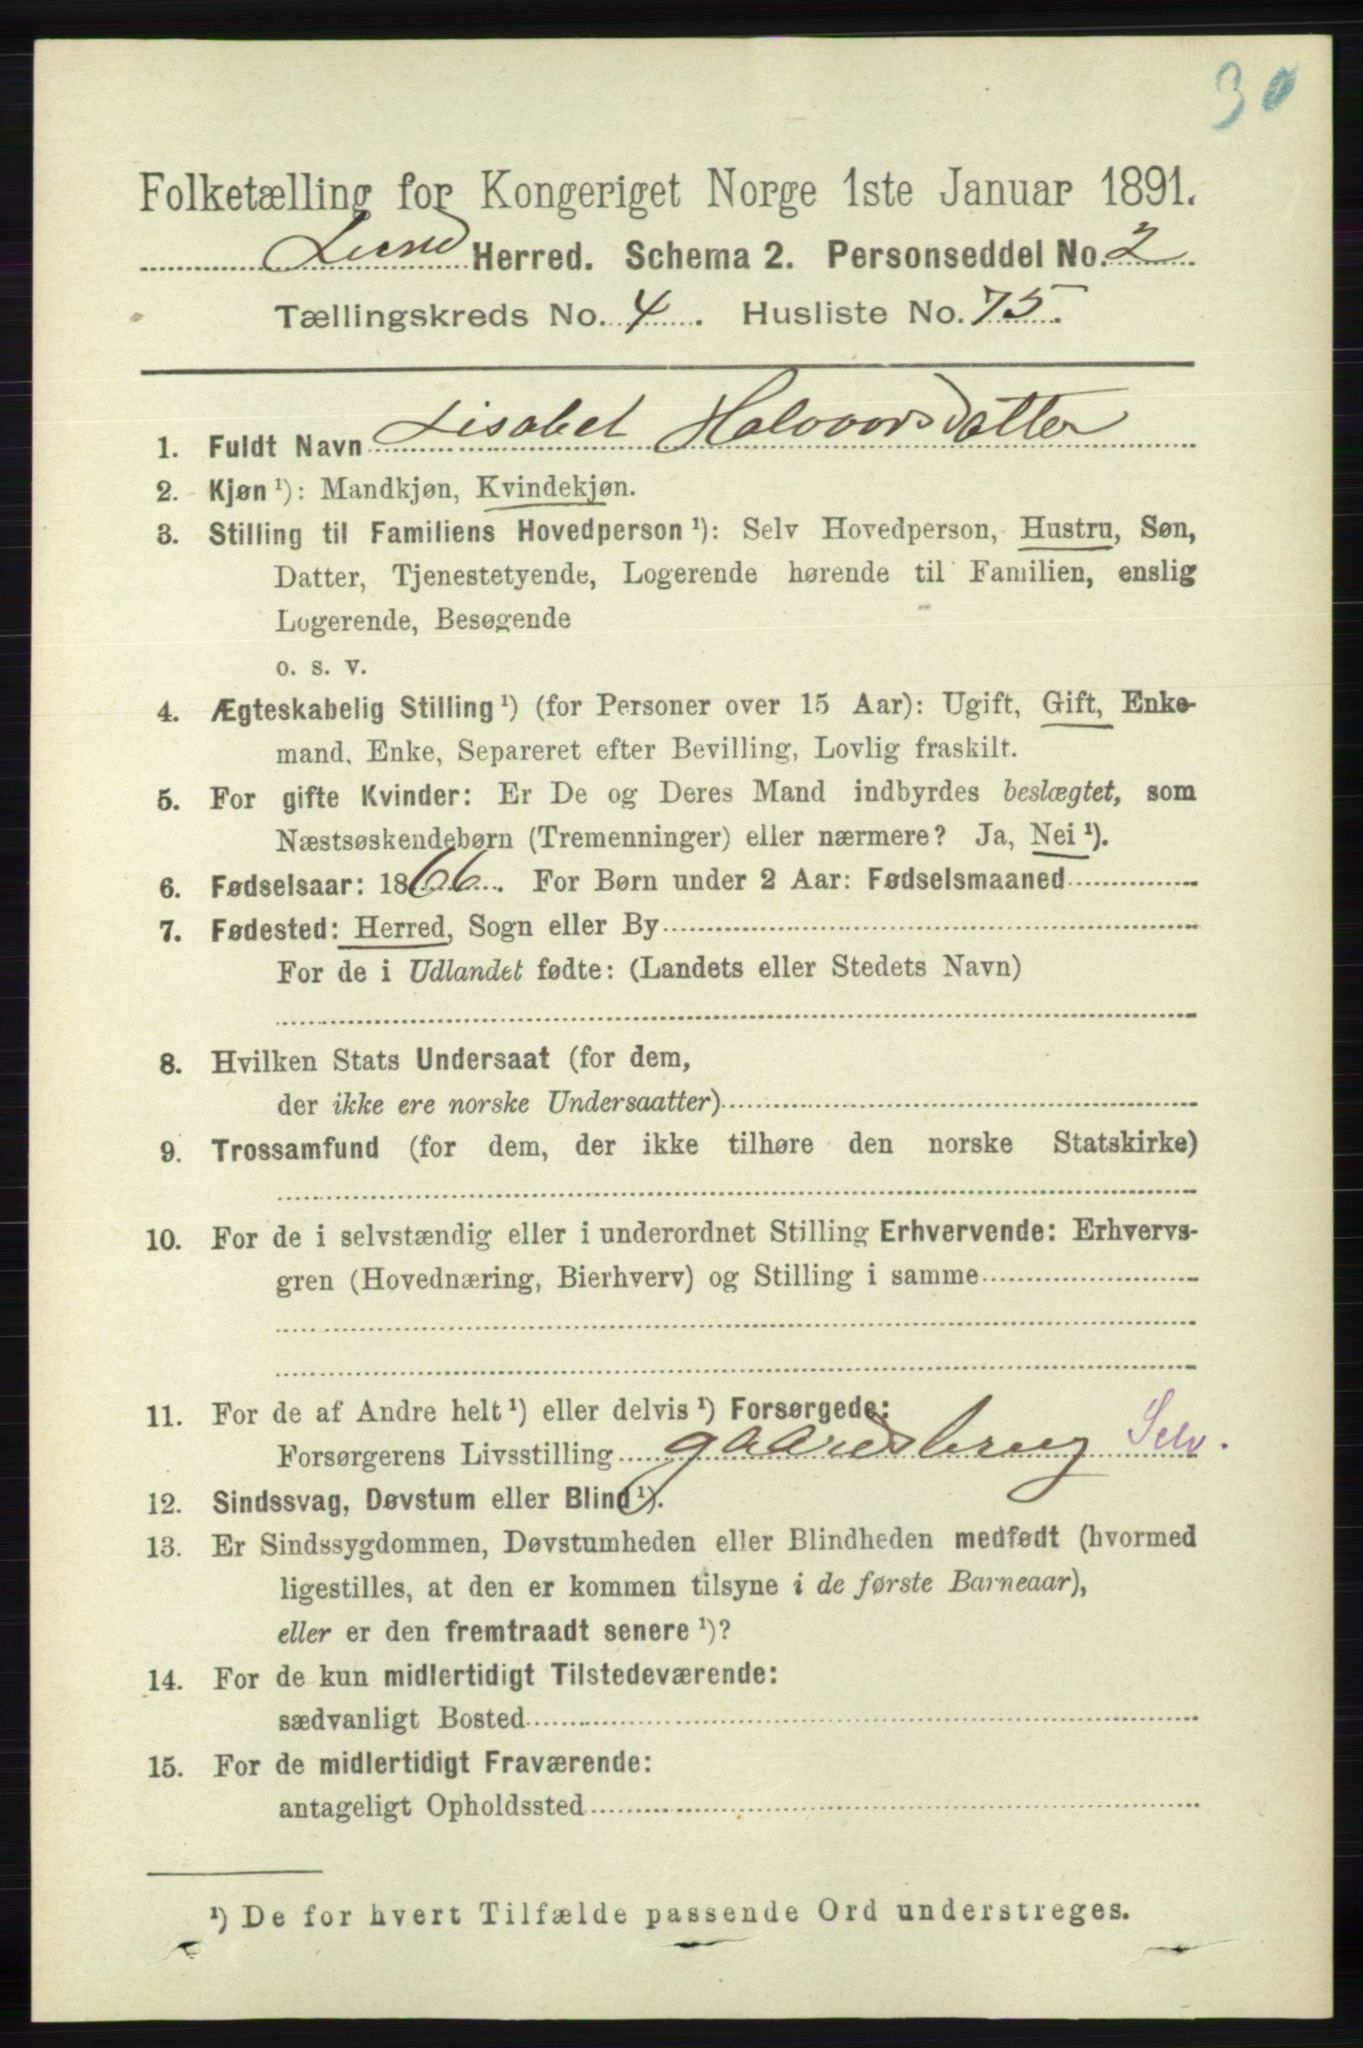 30
Folketælling for Kongeriget Norge 1ste Januar 1891.
Lund Herred. Schema 2. Personseddel No. 2
Tællingskreds No. 4. Husliste No. 75.
1. Fuldt Navn Lisabet Halvorsdatter
2. Kjøn ¹): Mandkjøn, Kvindekjøn.
3. Stilling til Familiens Hovedperson ¹): Selv Hovedperson, Hustru, Søn,
Datter, Tjenestetyende, Logerende hørende til Familien, enslig
Logerende, Besøgende
o. s. v.
4. Ægteskabelig Stilling ¹) (for Personer over 15 Aar): Ugift, Gift, Enke-
mand, Enke, Separeret efter Bevilling, Lovlig fraskilt.
5. For gifte Kvinder: Er De og Deres Mand indbyrdes beslægtet, som
Næstsøskendebørn (Tremenninger) eller nærmere? Ja, Nei ¹).
6. Fødselsaar: 1866. For Børn under 2 Aar: Fødselsmaaned
7. Fødested: Herred, Sogn eller By
For de i Udlandet fødte: (Landets eller Stedets Navn)
8. Hvilken Stats Undersaat (for dem,
der ikke ere norske Undersaatter)
9. Trossamfund (for dem, der ikke tilhøre den norske Statskirke)
10. For de i selvstændig eller i underordnet Stilling Erhvervende: Erhvervs-
gren (Hovednæring, Bierhverv) og Stilling i samme
11. For de af Andre helt ¹) eller delvis ¹) Forsørgede:
Forsørgerens Livsstilling gaardsbrug Selv.
12. Sindssvag, Døvstum eller Blind ¹).
13. Er Sindssygdommen, Døvstumheden eller Blindheden medfødt (hvormed
ligestilles, at den er kommen tilsyne i de første Barneaar),
eller er den fremtraadt senere ¹)?
14. For de kun midlertidigt Tilstedeværende:
sædvanligt Bosted
15. For de midlertidigt Fraværende:
antageligt Opholdssted
¹) De for hvert Tilfælde passende Ord understreges.